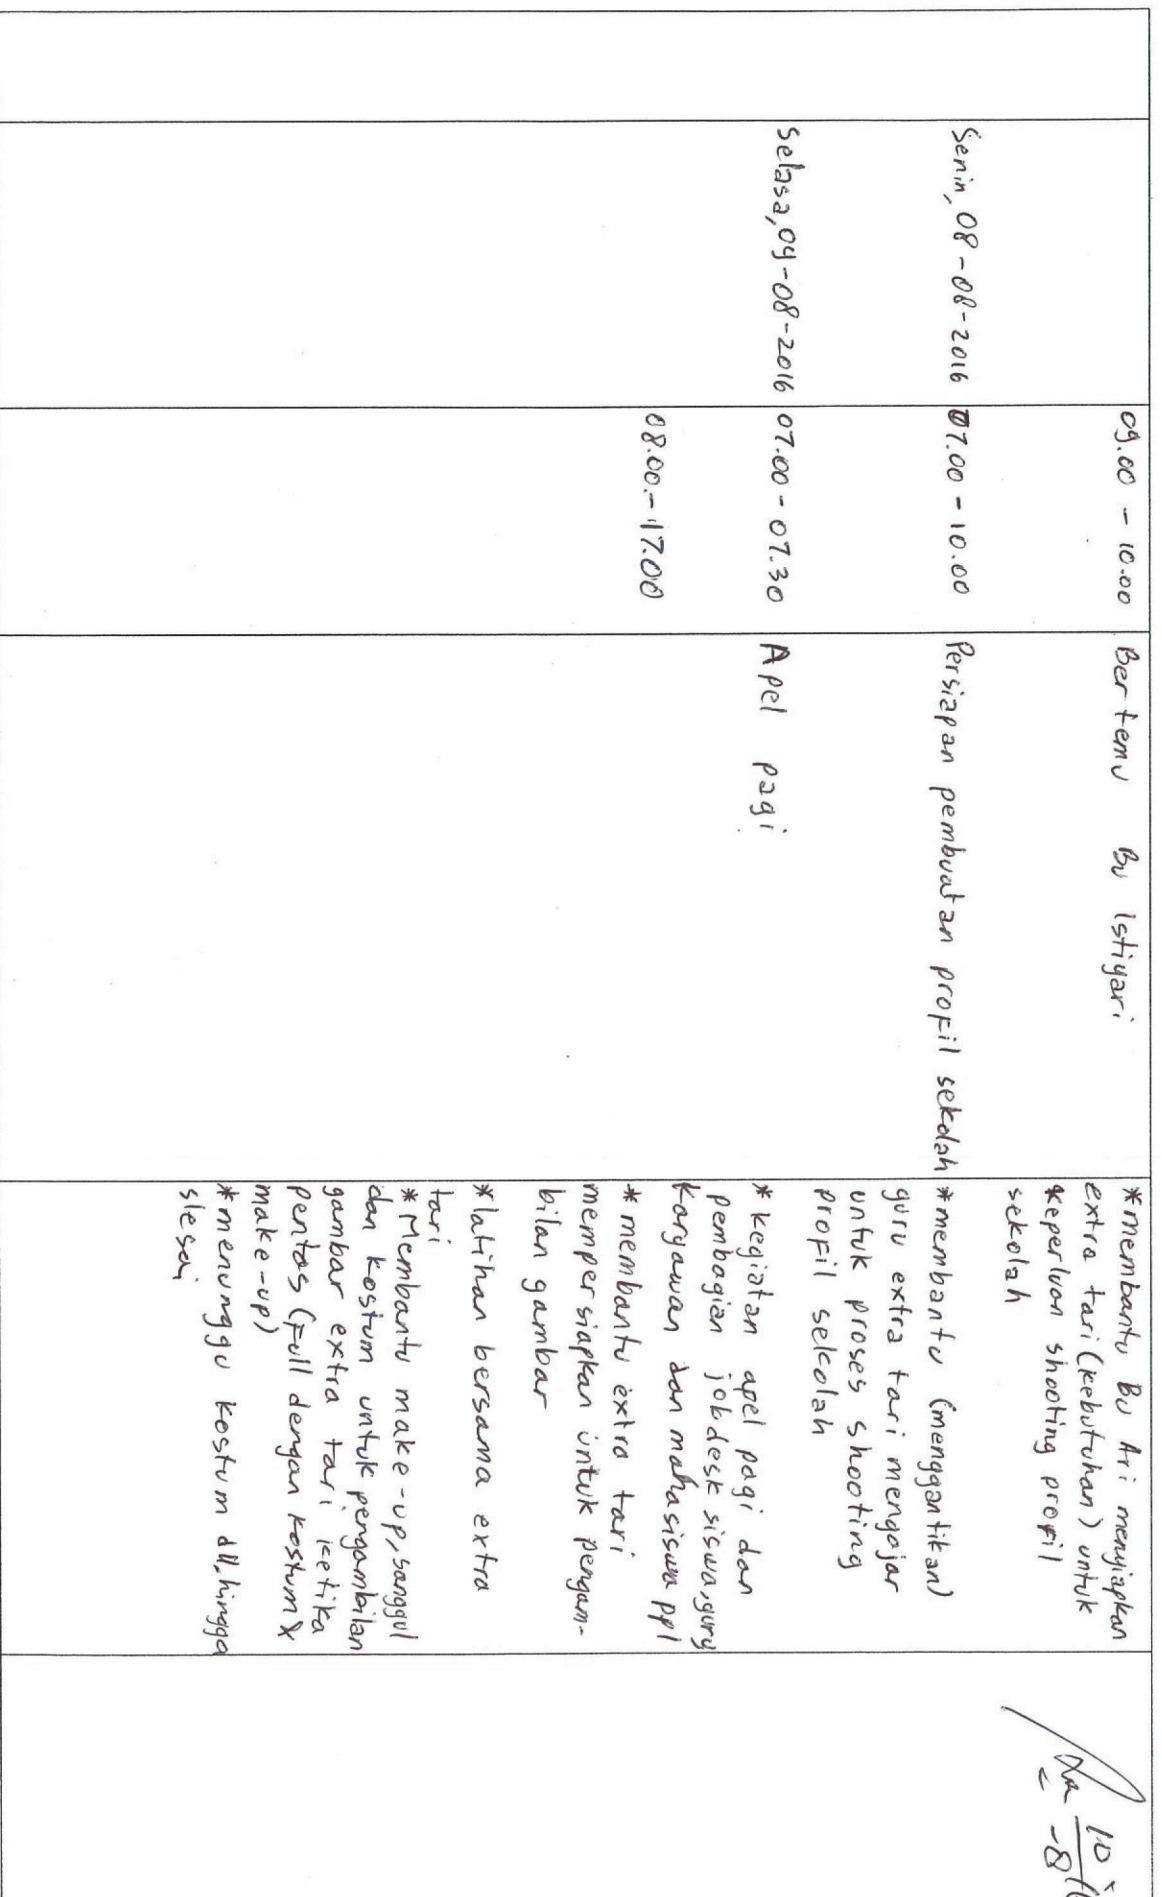 09.00 - 10.00
Bertemu Bu Istiyari
*membantu Bu Ari menyiapkan
extra tari (kebutuhan) untuk
keperluan shooting profil
sekolah
Senin, 08-08-2016
07.00 - 10.00
Persiapan pembuatan profil sekolah
*membantu (menggantikan)
guru extra tari mengajar
untuk proses shooting
profil sekolah
Selasa, 09-08-2016
07.00 - 07.30
Apel pagi
*kegiatan apel pagi dan
pembagian jobdesk siswa, guru
karyawan dan mahasiswa ppl
08.00 - 17.00
*membantu extra tari
mempersiapkan untuk pengam-
bilan gambar
*latihan bersama extra
tari
*Membantu make-up, sanggul
dan kostum untuk pengambilan
gambar extra tari ketika
pentas (full dengan kostum &
make-up)
*menunggu kostum dll, hingga
slesai
10
-8